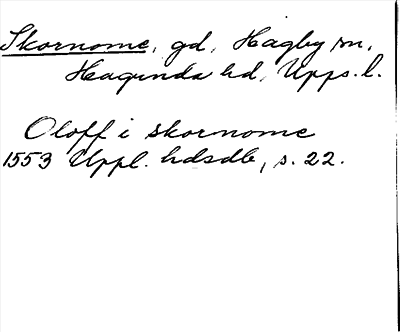 Skornome, gd, Hagby sn,
Hagunda hd, Upps. l.
Oloff i skornome
1553 Uppl. hdsdb, s. 22.